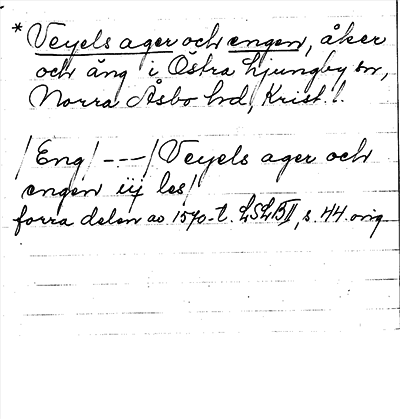 * Veyels ager och engen, åker
och äng i Östra Ljungby sn,
Norra Åsbo hd, Krist. l.
/Eng/ ---/Veyels ager och
engen iij les/
forra delen av 1570-t. LSLBII, s. 44. orig